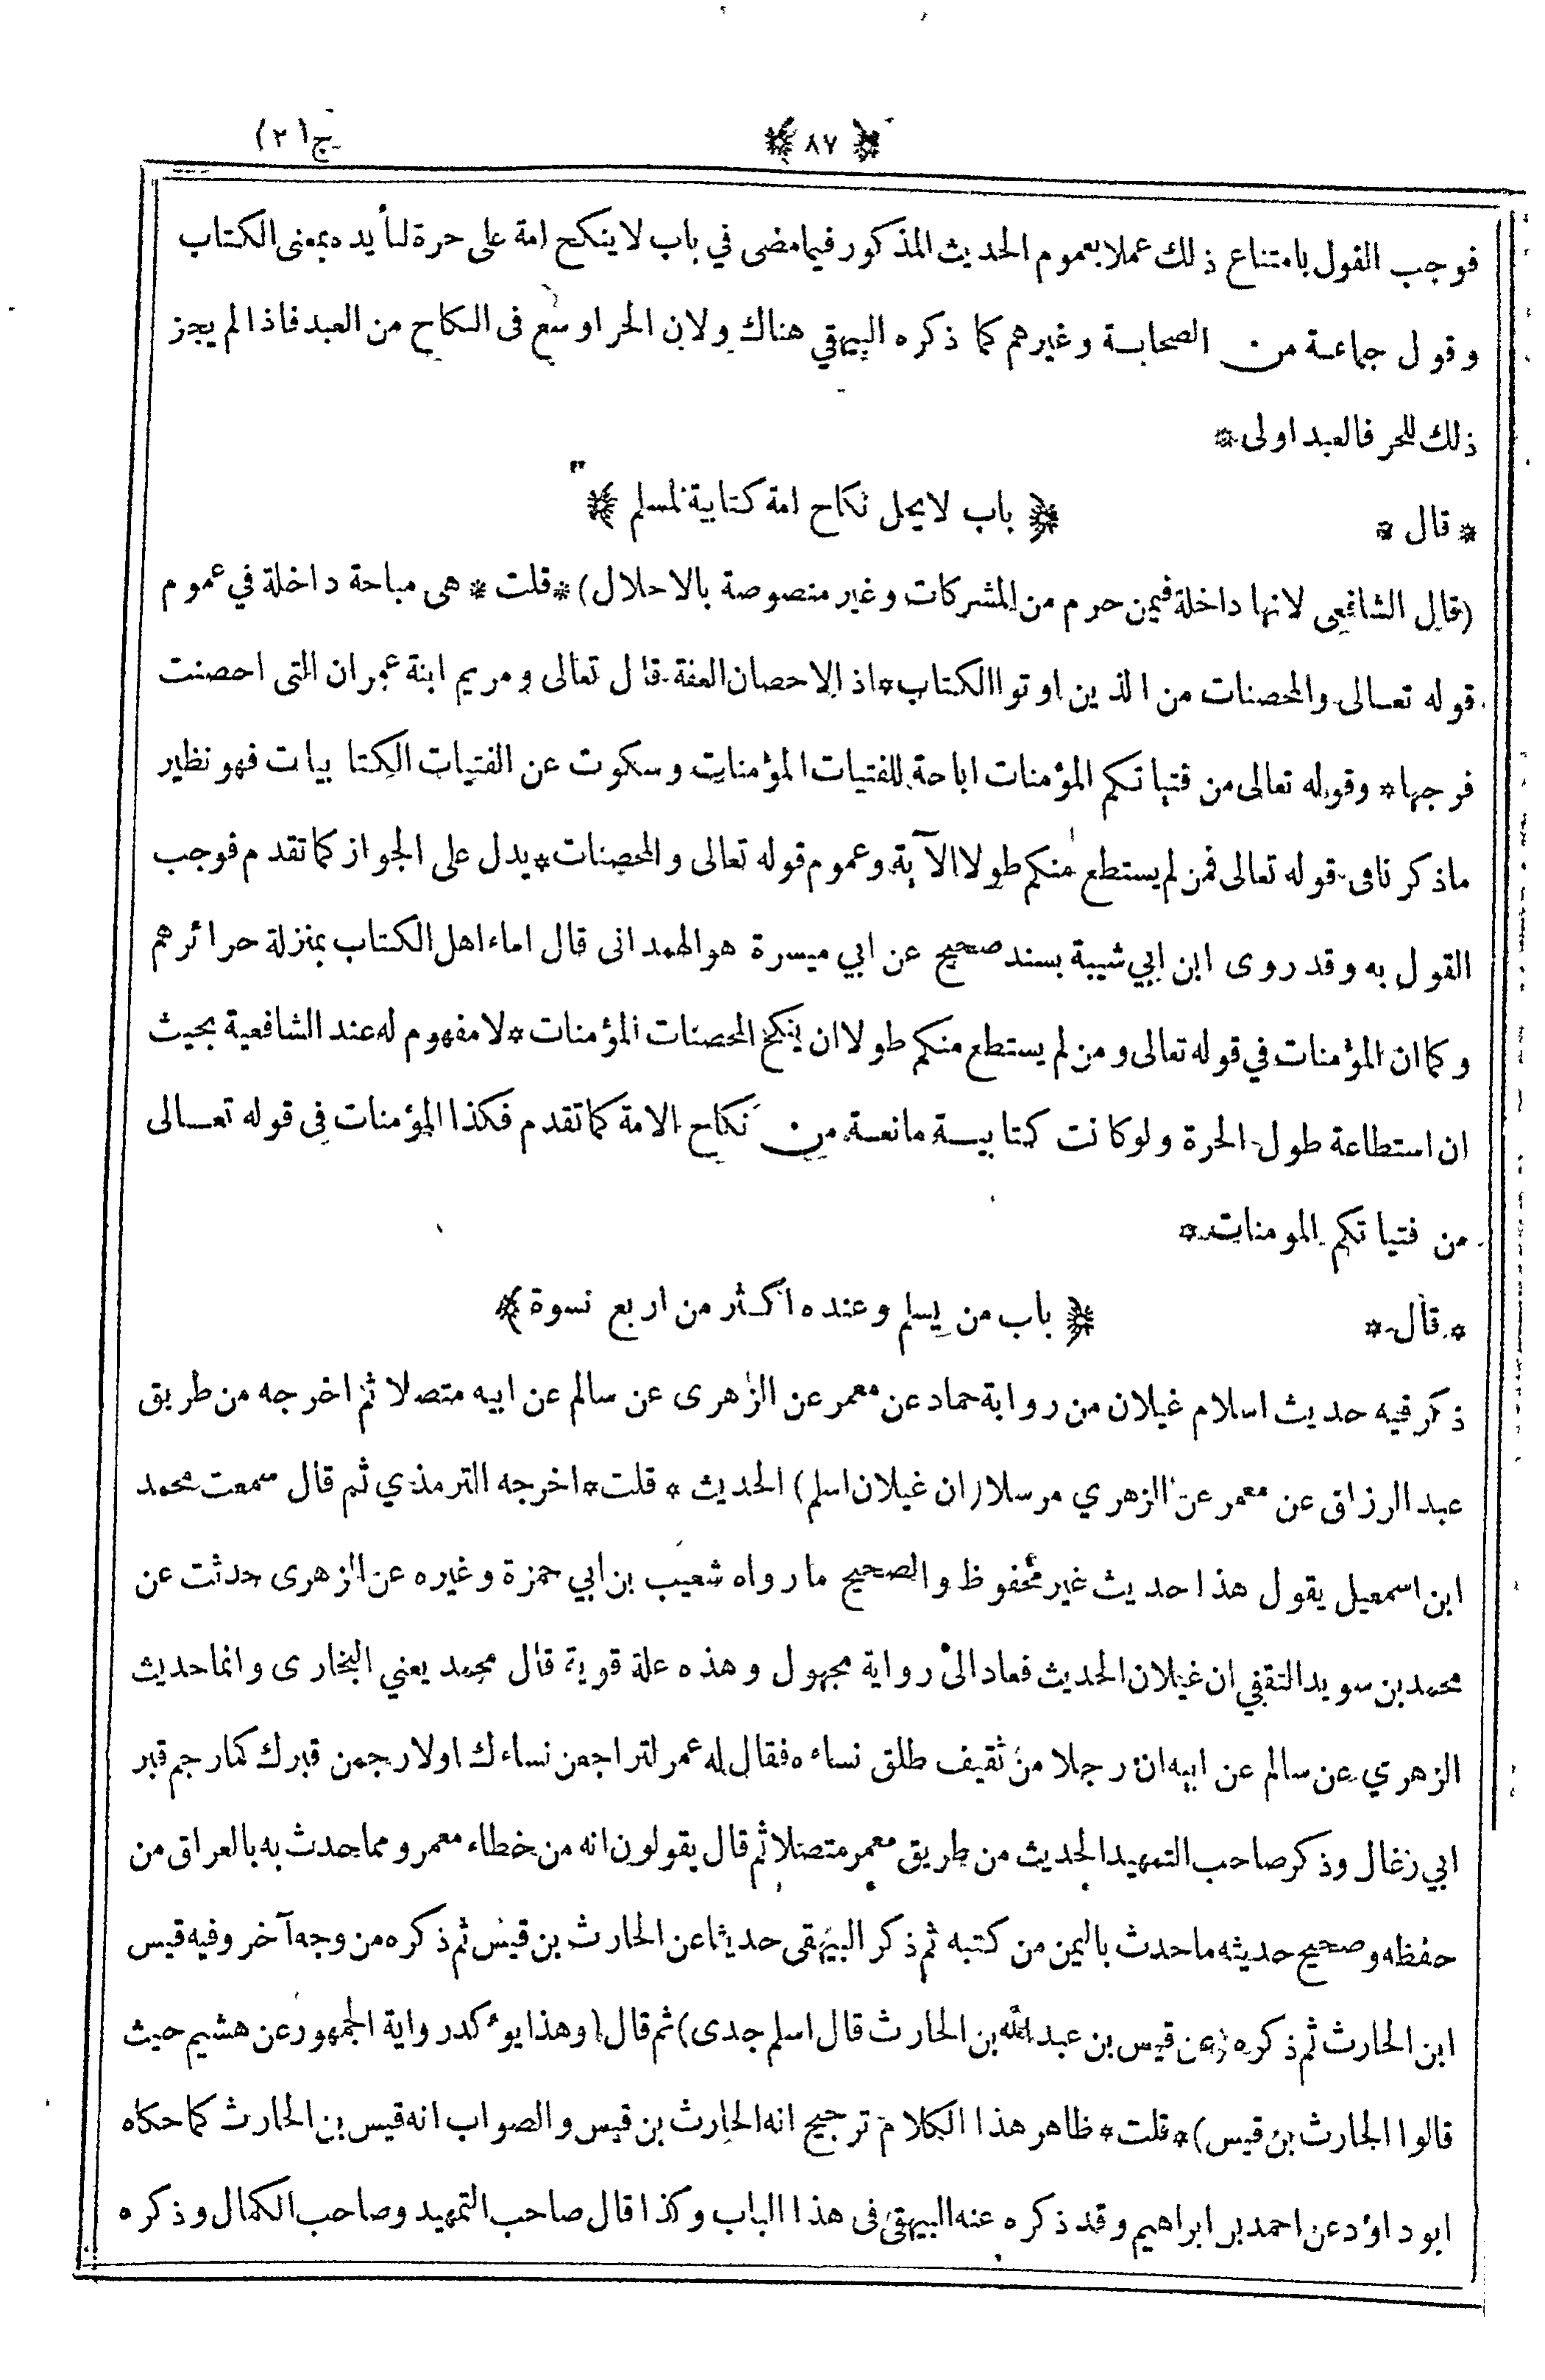 ﴿ ٨٧ ﴾ ج (٢)
فوجب القول بامتناع ذلك عملا بعموم الحديث المذكور فيما مضى في باب لا ينكح امة على حرة لتأيده بمعنى الكتاب
وقول جماعة من الصحابة وغيرهم كما ذكره البيهقي هناك ولان الحر اوسع فى النكاح من العبد فاذا لم يجز
ذلك للحر فالعبد اولى *
* قال * ﴿ باب لا يحل نكاح امة كتابية لمسلم ﴾
(قال الشافعى لانها داخلة فيمن حرم من المشركات وغير منصوصة بالاحلال) * قلت * هى مباحة داخلة في عموم
قوله تعالى والمحصنات من الذين اوتوا الكتاب * اذ الاحصان العفة قال تعالى ومريم ابنة عمران التى احصنت
فرجها * وقوله تعالى من فتياتكم المؤمنات اباحة للفتيات المؤمنات وسكوت عن الفتيات الكتابيات فهو نظير
ماذكرنا فى قوله تعالى فمن لم يستطع منكم طولا الآية وعموم قوله تعالى والمحصنات * يدل على الجواز كما تقدم فوجب
القول به وقد روى ابن ابي شيبة بسند صحيح عن ابي ميسرة هو الهمدانى قال اماء اهل الكتاب بمنزلة حرائرهم
وكما ان المؤمنات في قوله تعالى ومن لم يستطع منكم طولا ان ينكح المحصنات المؤمنات * لا مفهوم له عند الشافعية بحيث
ان استطاعة طول الحرة ولو كانت كتابية مانعة من نكاح الامة كما تقدم فكذا المؤمنات فى قوله تعالى
من فتياتكم المومنات *
* قال * ﴿ باب من يسلم وعنده اكثر من اربع نسوة ﴾
ذكر فيه حديث اسلام غيلان من رواية حماد عن معمر عن الزهرى عن سالم عن ابيه متصلا ثم اخرجه من طريق
عبد الرزاق عن معمر عن الزهري مرسلا (ان غيلان اسلم) الحديث * قلت * اخرجه الترمذي ثم قال سمعت محمد
ابن اسمعيل يقول هذا حديث غير محفوظ والصحيح ما رواه شعيب بن ابي حمزة وغيره عن الزهرى حدثت عن
محمد بن سويد الثقفي ان غيلان الحديث فعاد الى رواية مجهول وهذه علة قوية قال محمد يعني البخارى وانما حديث
الزهري عن سالم عن ابيه ان رجلا من ثقيف طلق نساءه فقال له عمر لتراجعن نساءك اولارجمن قبرك كما رجم قبر
ابي رغال وذكر صاحب التمهيد الحديث من طريق معمر متصلا ثم قال يقولون انه من خطاء معمر ومما حدث به بالعراق من
حفظه وصحيح حديثه ما حدث باليمن من كتبه ثم ذكر البيهقى حديثا عن الحارث بن قيس ثم ذكره من وجه آخر وفيه قيس
ابن الحارث ثم ذكره (عن قيس بن عبد الله بن الحارث قال اسلم جدى) ثم قال (وهذا يوءكد رواية الجمهور عن هشيم حيث
قالوا الحارث بن قيس) * قلت * ظاهر هذا الكلام ترجيح انه الحارث بن قيس والصواب انه قيس بن الحارث كما حكاه
ابو داؤد عن احمد بن ابراهيم وقد ذكره عنه البيهقى فى هذا الباب وكذا قال صاحب التمهيد وصاحب الكمال وذكره